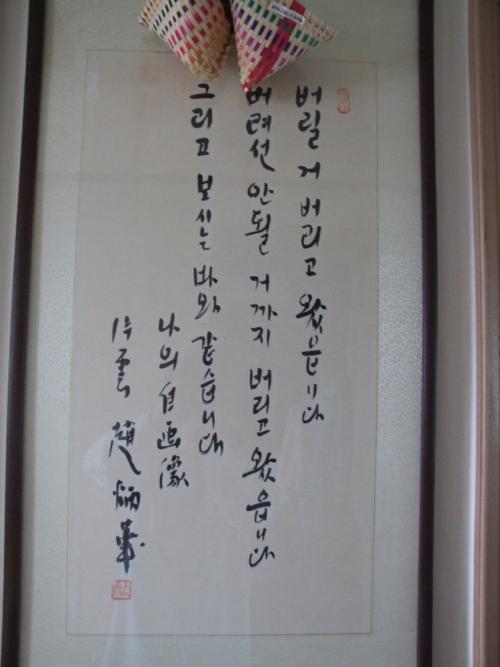 버릴 거 버리고 왔읍니다
버려선 안될 거까지 버리고 왔읍니다
그리고 보시는 바와 같습니다
나의 自画像
片雲 趙炳華